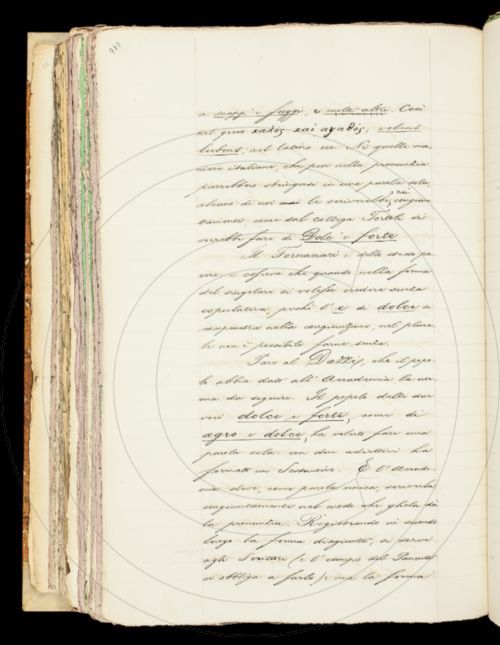 e scappi e fuggi, e molti altri. Così
nel greco καλὸς καὶ αγαθὸς; volens
lubens, nel latino ecc. Nè quelle ma-
niere italiane, che pur nella pronunzia
parrebbero stringersi in una parola sola,
alcuno di noi le scriverebbe mai congiun-
tamente, come dal collega Tortoli si
vorrebbe fare di Dolce e forte.
Il Fornaciari è dello stesso pa-
rere, e osserva che quando nella forma
del singolare si volesse credere senza
copulativa, poichè l'e di dolce si
nella congiunzione, nel plura-
le non è possibile farne senza.
Pare al Dazzi, che il popo-
lo abbia dato all'Accademia la nor-
ma da seguire. Il popolo delle due
voci dolce e forte, come di
agro e dolce, ha voluto fare una
parola sola: con due adiettivi ha
formato un Sostantivo. E l'Accade-
mia deve, come parola unica, scriverla
congiuntamente nel modo che glielo dà
la pronunzia. Registrando in
luogo la forma disgiunta, si serve
agli Scrittori (e l'esempio del Panciat.
ci obbliga a farlo) ma la forma